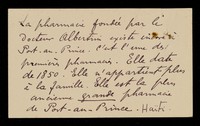 La pharmacie fondée par le
Docteur Albertini existe encore à
Port-au-Prince. C'est l'une des
premières pharmacies. Elle date
de 1850. Elle n'appartient plus
à la famille. Elle est la plus
ancienne grande pharmacie
de Port-au-Prince - Haïti.